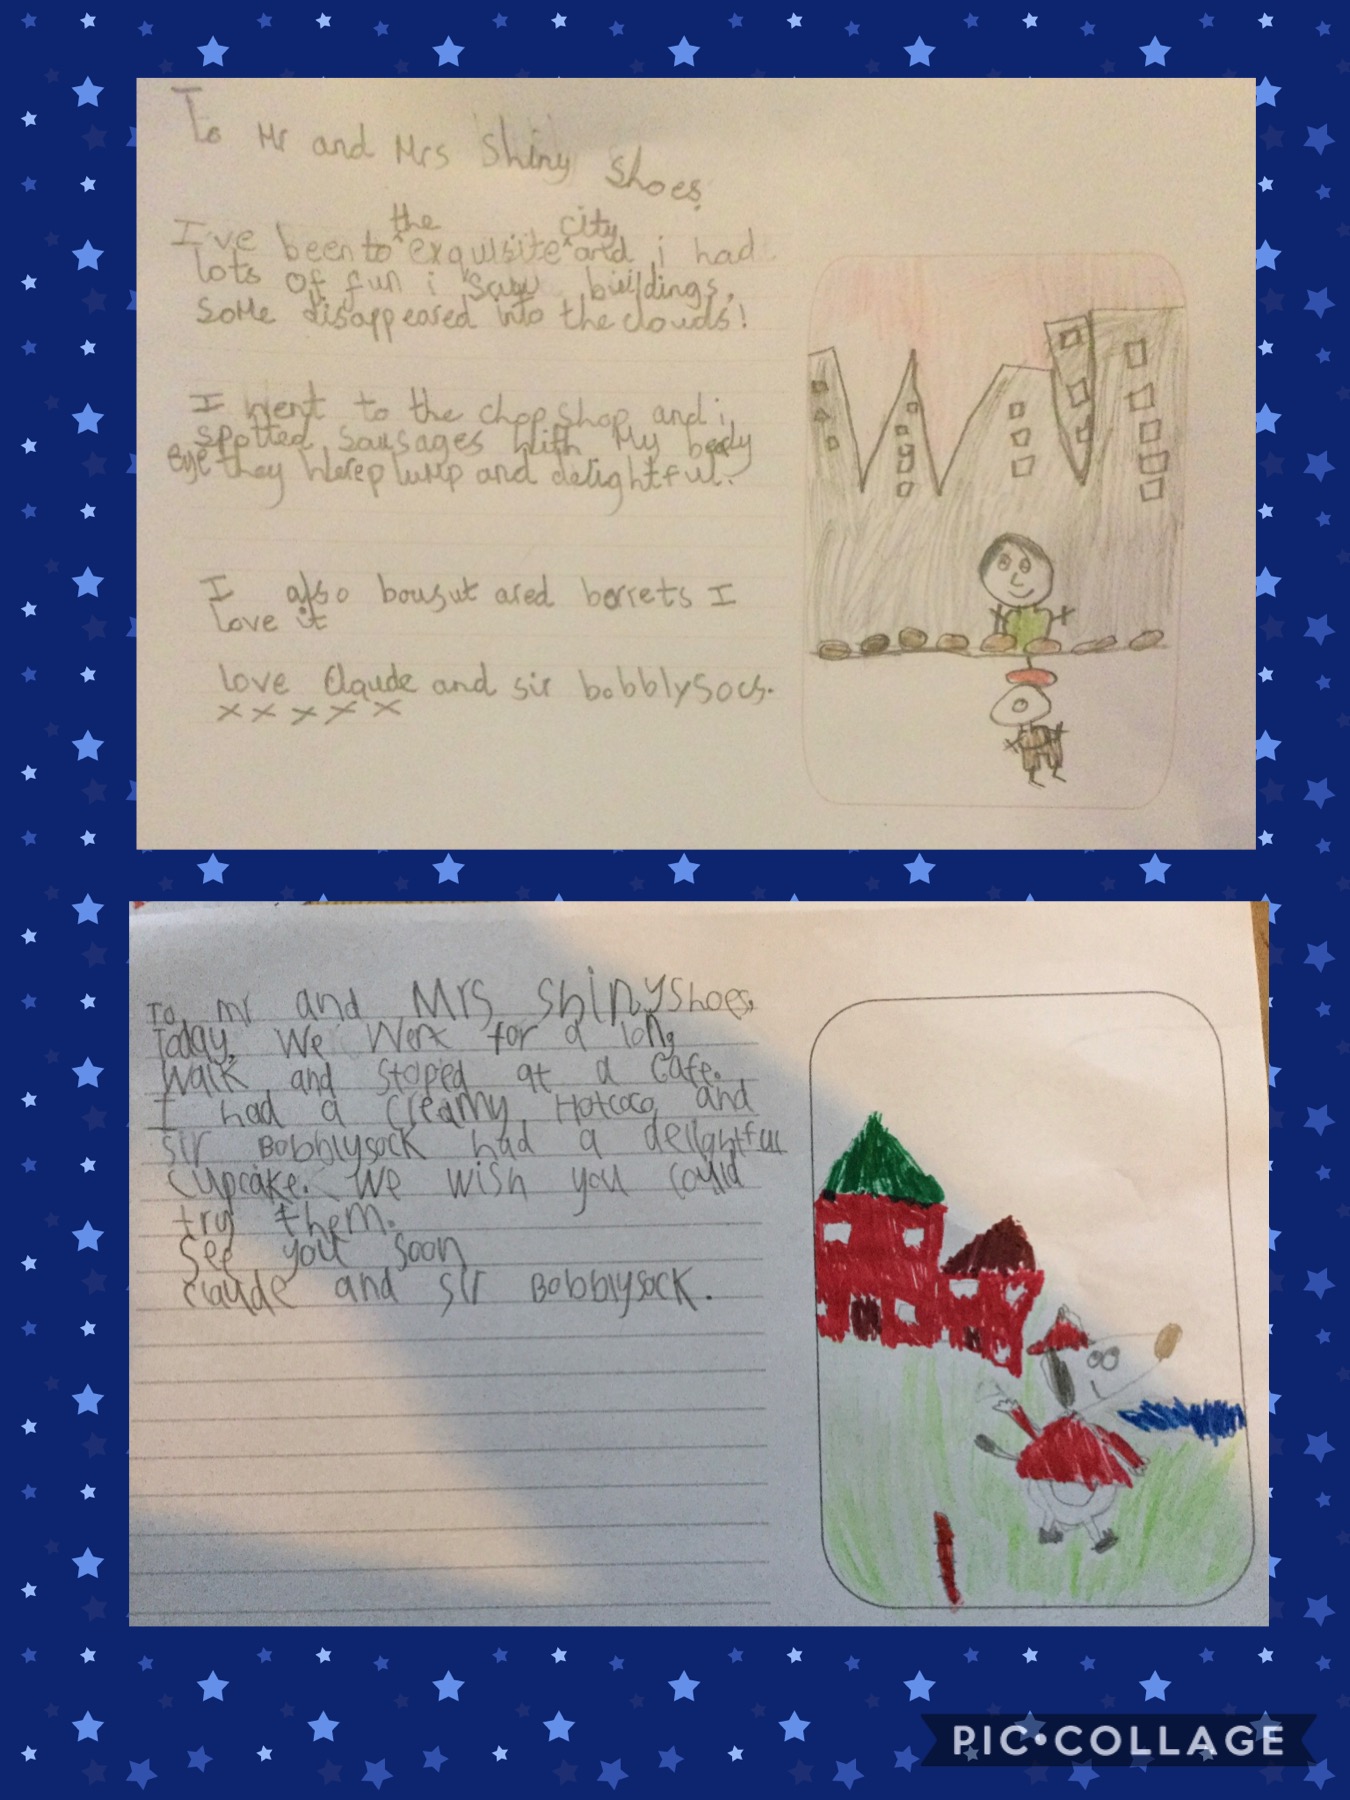 To Mr and Mrs Shiny Shoes
the city
I've been to exquisite and i had
lots of fun i saw buildings,
some disappeared into the clouds!
I went to the chop shop and i
spotted sausages with My beady
eye they were plump and delightful.
I also bougut ared berrets I
love it
love Claude and sir bobblysocs.
x x x x x
To mr and Mrs Shinyshoes,
Today, We Went for a long
Walk and stoped at a Cafe.
I had a creamy Hotcoco and
sir Bobblysock had a delightful
cupcake. We wish you could
try them.
See you soon
claude and sir Bobblysock.
PIC•COLLAGE